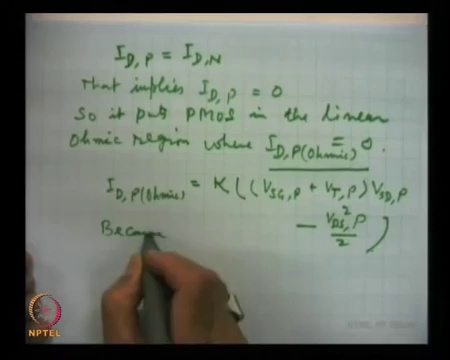 I_{D,P} = I_{D,N}
That implies I_{D,P} = 0
So it puts PMOS in the linear
Ohmic region where I_{D,P(Ohmic)} = 0.
I_{D,P(Ohmic)} = K ( (V_{SG,P} + V_{T,P}) V_{SD,P}
- V_{DS,P}^2 / 2 )
Becau
NPTEL